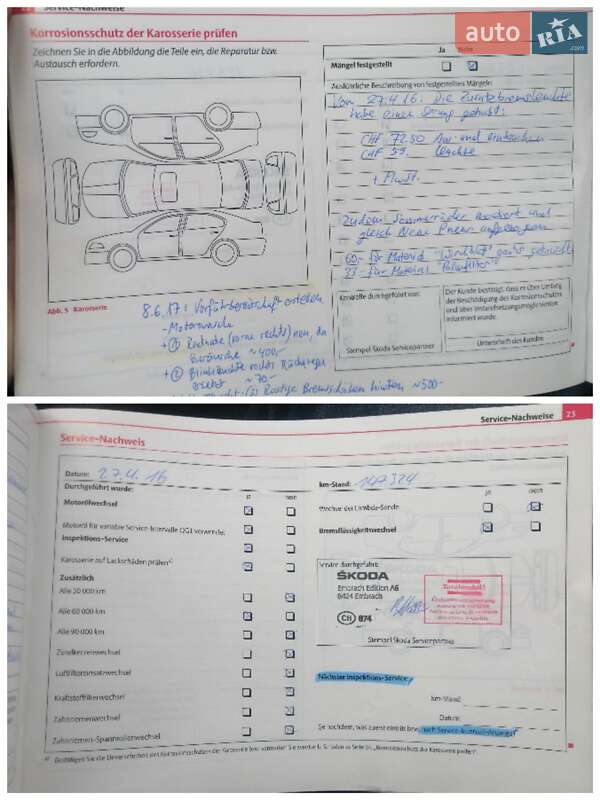 Service-Nachweise
auto RIA.com
Korrosionsschutz der Karosserie prüfen
Zeichnen Sie in die Abbildung die Teile ein, die Reparatur bzw.
Austausch erfordern.
Ja Nein
Mängel festgestellt
Ausführliche Beschreibung von festgestellten Mängeln:
Vom 27.4.16. Die Zusatzbremsleuchte
habe einen Sprung gehabt:
CHF 72.50 Aus- und einbauen
CHF 55.- Leuchte
+ MwSt.
Zudem Sommerräder montiert und
gleich Neue Pneus aufgezogen
für Material
23.- für Material "Pollenfilter"
Abb. 5 Karosserie
8.6.17: Vorführbereitschaft erstellen
- Motorwäsche
+ ① Radnabe (vorne rechts) neu, da
Geräusche ~400,-
+ ② Blinkleuchte rechts
ersetzt ~70-
Rostige Bremsscheiben hinten ~500-
Kontrolle durchgeführt von:
Stempel Škoda Servicepartner
Der Kunde bestätigt, dass er über Umfang
der Beschädigung des Korrosionsschutzes
und über Instandsetzungsmöglichkeiten
informiert wurde.
Unterschrift des Kunden
Service-Nachweise 23
Service-Nachweis
Datum: 27.4.16
km-Stand: 147324
Durchgeführt wurde: ja nein
ja nein
Motorölwechsel
Wechsel der Lambda-Sonde
Motoröl für variable Service-Intervalle QG1 verwendet
Bremsflüssigkeitwechsel
Inspektions-Service
Karosserie auf Lackschäden prüfen
Zusätzlich
Alle 30 000 km
Alle 60 000 km
Alle 90 000 km
Zündkerzenwechsel
Luftfiltereinsatzwechsel
Kraftstofffilterwechsel
Zahnriemenwechsel
Zahnriemen-Spannrollenwechsel
Service durchgeführt:
ŠKODA
Embrach Edition AG
8424 Embrach
CH 874
Stempel Škoda Servicepartner
Nächster Inspektions-Service:
km-Stand:
Datum:
(je nachdem, was zuerst eintritt bzw. nach Service-Intervall-Anzeige)